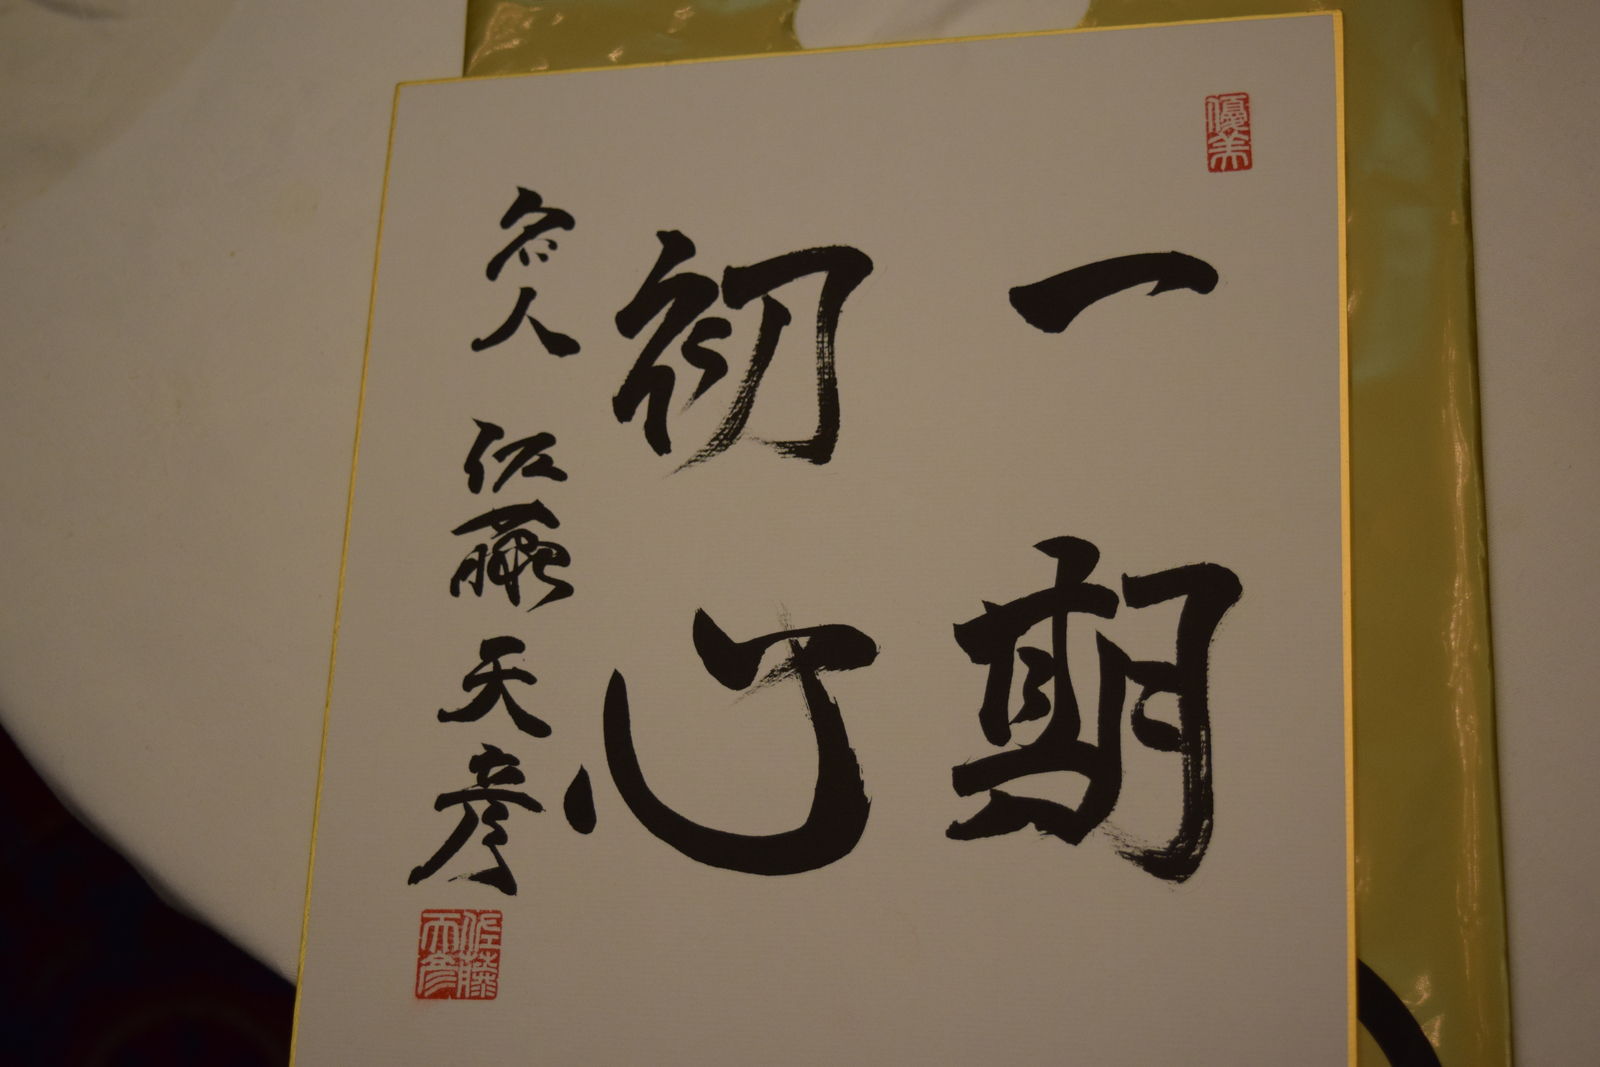 優美
一期
初心
名人 佐藤天彦
佐藤
天彦